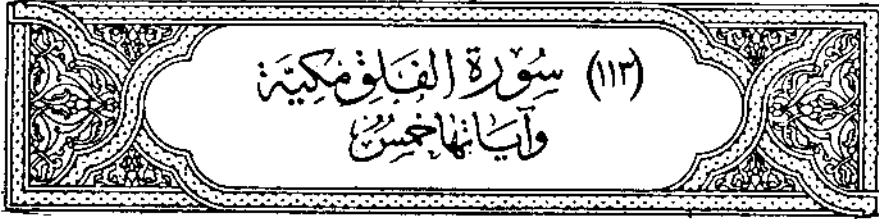 (١١٣) سُورَة الفَلَقِ مَكِيَّة
وَآيَاتهَا خَمْسٌ